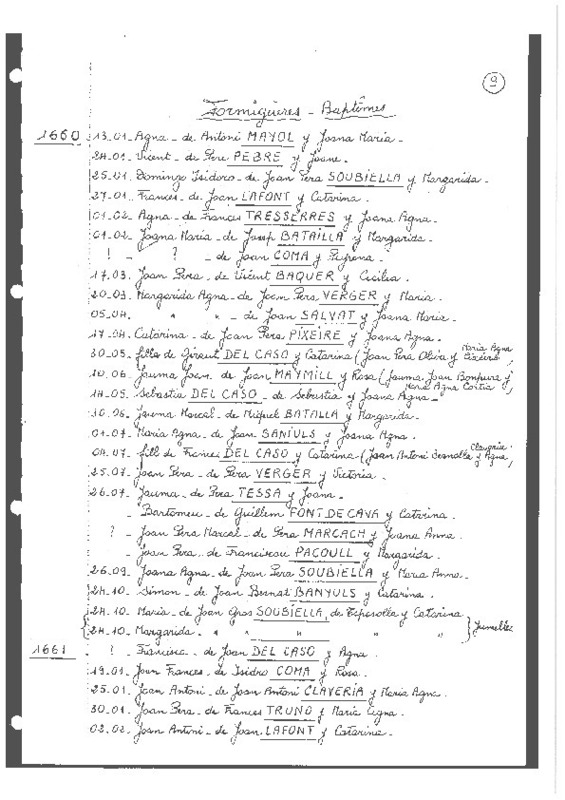 9
Formigüeres - Baptêmes
1660 13.01. Agna - de Antoni MAYOL y Joana Maria.
24.01. Vicent - de Pere PEBRE y Joane.
25.01. Domingo Isidoro - de Joan Pera SOUBIELLA y Margarida.
27.01. Frances - de Joan LAFONT y Catarina.
01.02. Agna - de Frances TRESSERRES y Joana Agna.
01.02. Joana Maria - de Josep BATAILLA y Margarida.
! - ? - de Joan COMA y
17.03. Joan Pera - de Vicent BAQUER y Cecilia.
20.03. Margarida Agna - de Joan Pera VERGER y Maria.
05.04. " " - de Joan SALVAT y Joana Maria.
17.04. Catarina - de Joan Pera PIXEIRE y Joana Agna.
30.05. filla de Giraut DEL CASO y Catarina (Joan Pera Oliva y Maria Agna
10.06. Jauma Joan - de Joan MAYMILL y Rosa (Jauma Joan Bonpure y Maria Agna Costia),
14.05. Sebastia DEL CASO - de Sebastia y Joana Agna -
30.06. Jauma Marcal - de Miquel BATALLA y Margarida.
01.07. Maria Agna - de Joan BANIULS y Joana Agna.
04.07. fill de Frances DEL CASO y Catarina - (Joan Antoni y Agna,
25.07. Joan Pera - de Pera VERGER y Victoria.
26.07. Jauma - de Pera TESSA y Joana.
- Bartomeu - de Guillem FONT DE CAVA y Catarina.
? - Joan Pera Marcal - de Pera MARCACH y Juana Anna.
- Joan Pera - de Franciscau PACOULL y Margarida.
26.09. Joana Agna - de Joan Pera SOUBIELLA y Maria Anna.
24.10. Simon - de Joan Bernat BANYULS y Catarina.
24.10. Maria - de Joan Gros SOUBIELLA, de Espesolla y Catarina
24.10. Margarida. " " " " " Jumelles
1661 ? - Francisca - de Joan DEL CASO y Agna.
19.01. Joan Frances - de Isidro COMA y Rosa.
25.01. Joan Antoni - de Joan Antoni CLAVERIA y Maria Agna.
30.01. Joan Pera - de Frances TRUNO y Maria Agna.
02.02. Joan Antoni - de Joan LAFONT y Catarina.